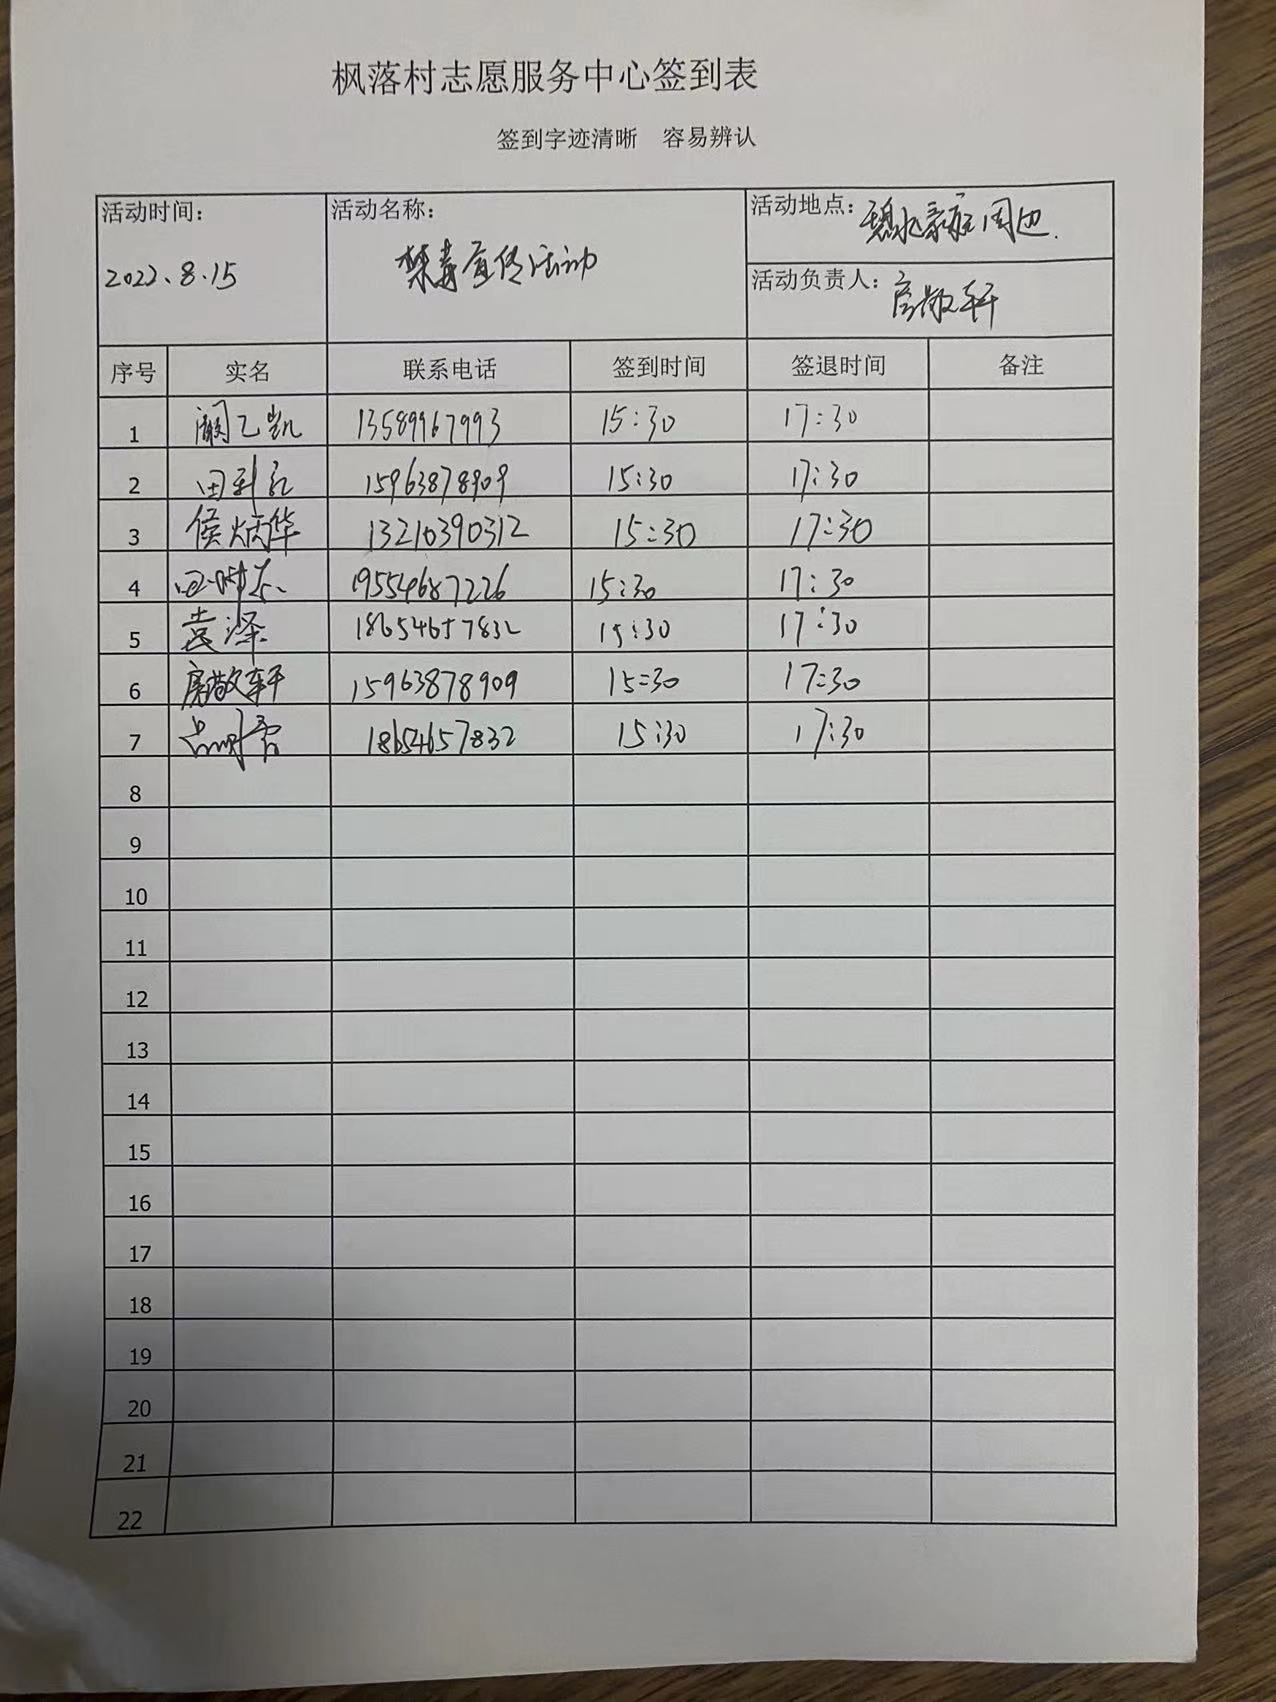 枫落村志愿服务中心签到表
签到字迹清晰 容易辨认
活动时间： 活动名称： 活动地点：碧水豪庭周边.
2022.8.15 禁毒宣传活动 活动负责人：房敬轩
序号 实名 联系电话 签到时间 签退时间 备注
1 乙凯 13589967993 15:30 17:30
2 田 15963878909 15:30 17:30
3 侯炳华 13210390312 15:30 17:30
4 19554687226 15:30 17:30
5 袁泽 18654657832 15:30 17:30
6 房敬轩 15963878909 15:30 17:30
7 18654657832 15:30 17:30
8
9
10
11
12
13
14
15
16
17
18
19
20
21
22